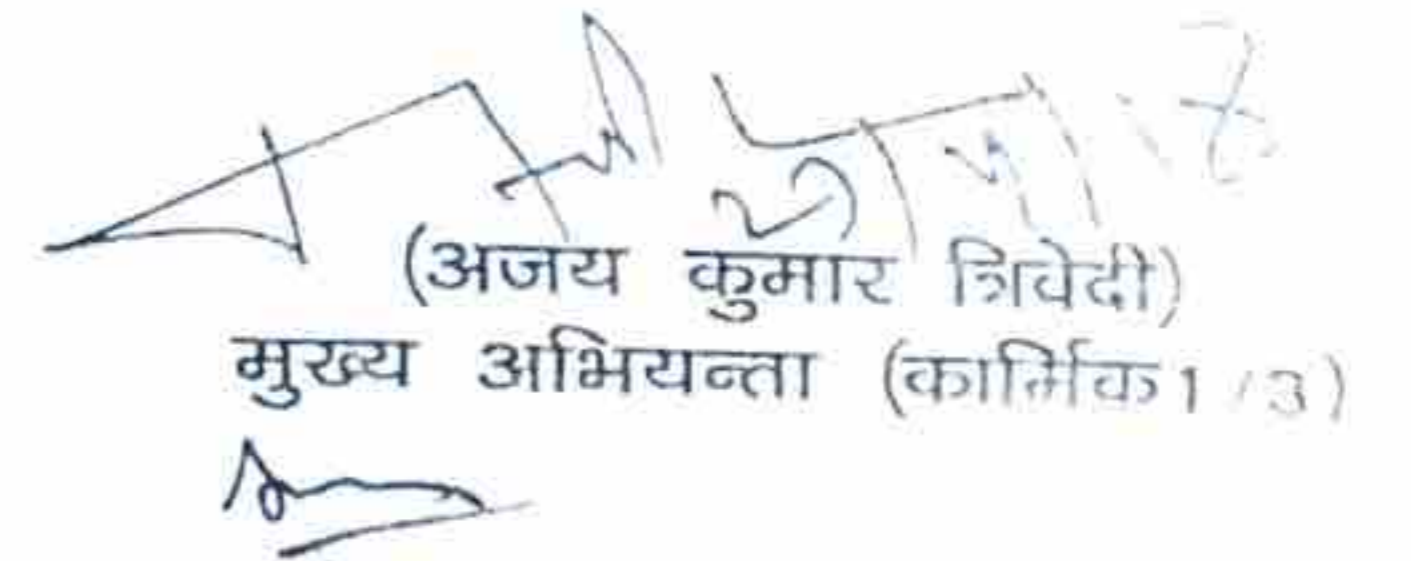 (अजय कुमार त्रिवेदी)
मुख्य अभियन्ता (कार्मिक1/3)